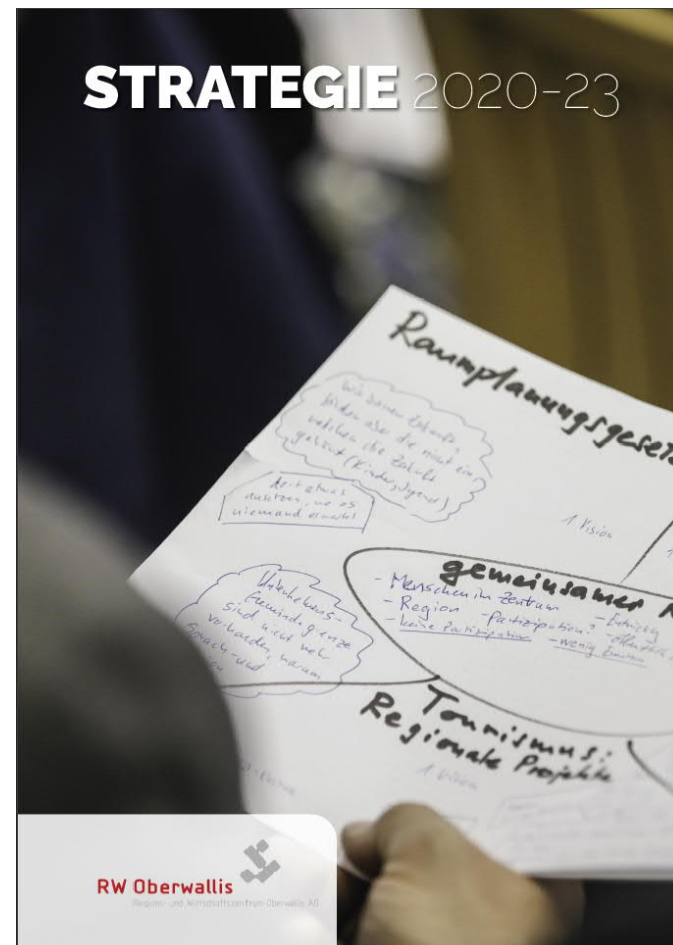 STRATEGIE 2020-23
Raumplanungsgesetz
Wir bauen Zukunft,
bilden aber die nicht ein,
welchen die Zukunft
gehört (Kinder, Jugend)
dort etwas
ansetzen, wo es
niemand erwartet
1 Vision
gemeinsamer
- Menschen im Zentrum
- Region - Partizipation!
- keine Partizipation - wenig
Gemeindegrenze
sind nicht mehr
vorhanden, warum
Sprach- und
Tourismus:
Regionale Projekte
1 Vision
RW Oberwallis
Regions- und Wirtschaftszentrum Oberwallis AG